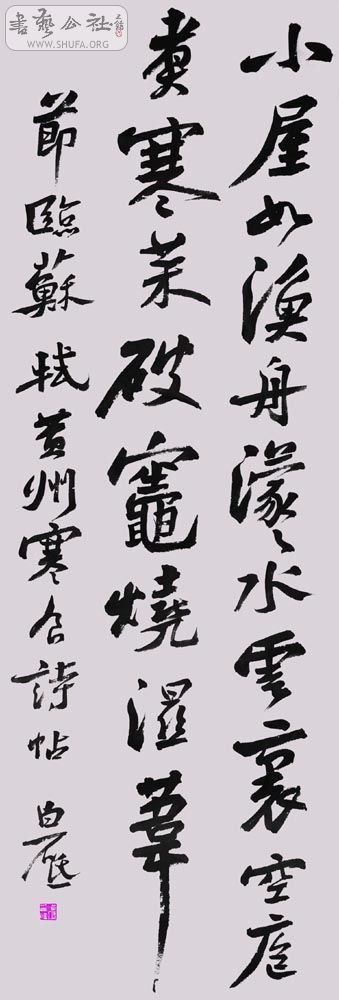 小屋如漁舟濛〻水雲裏空庖
煮寒菜破竈燒濕葦
節臨蘇軾黃州寒食詩帖 白砥
書藝公社
WWW.SHUFA.ORG